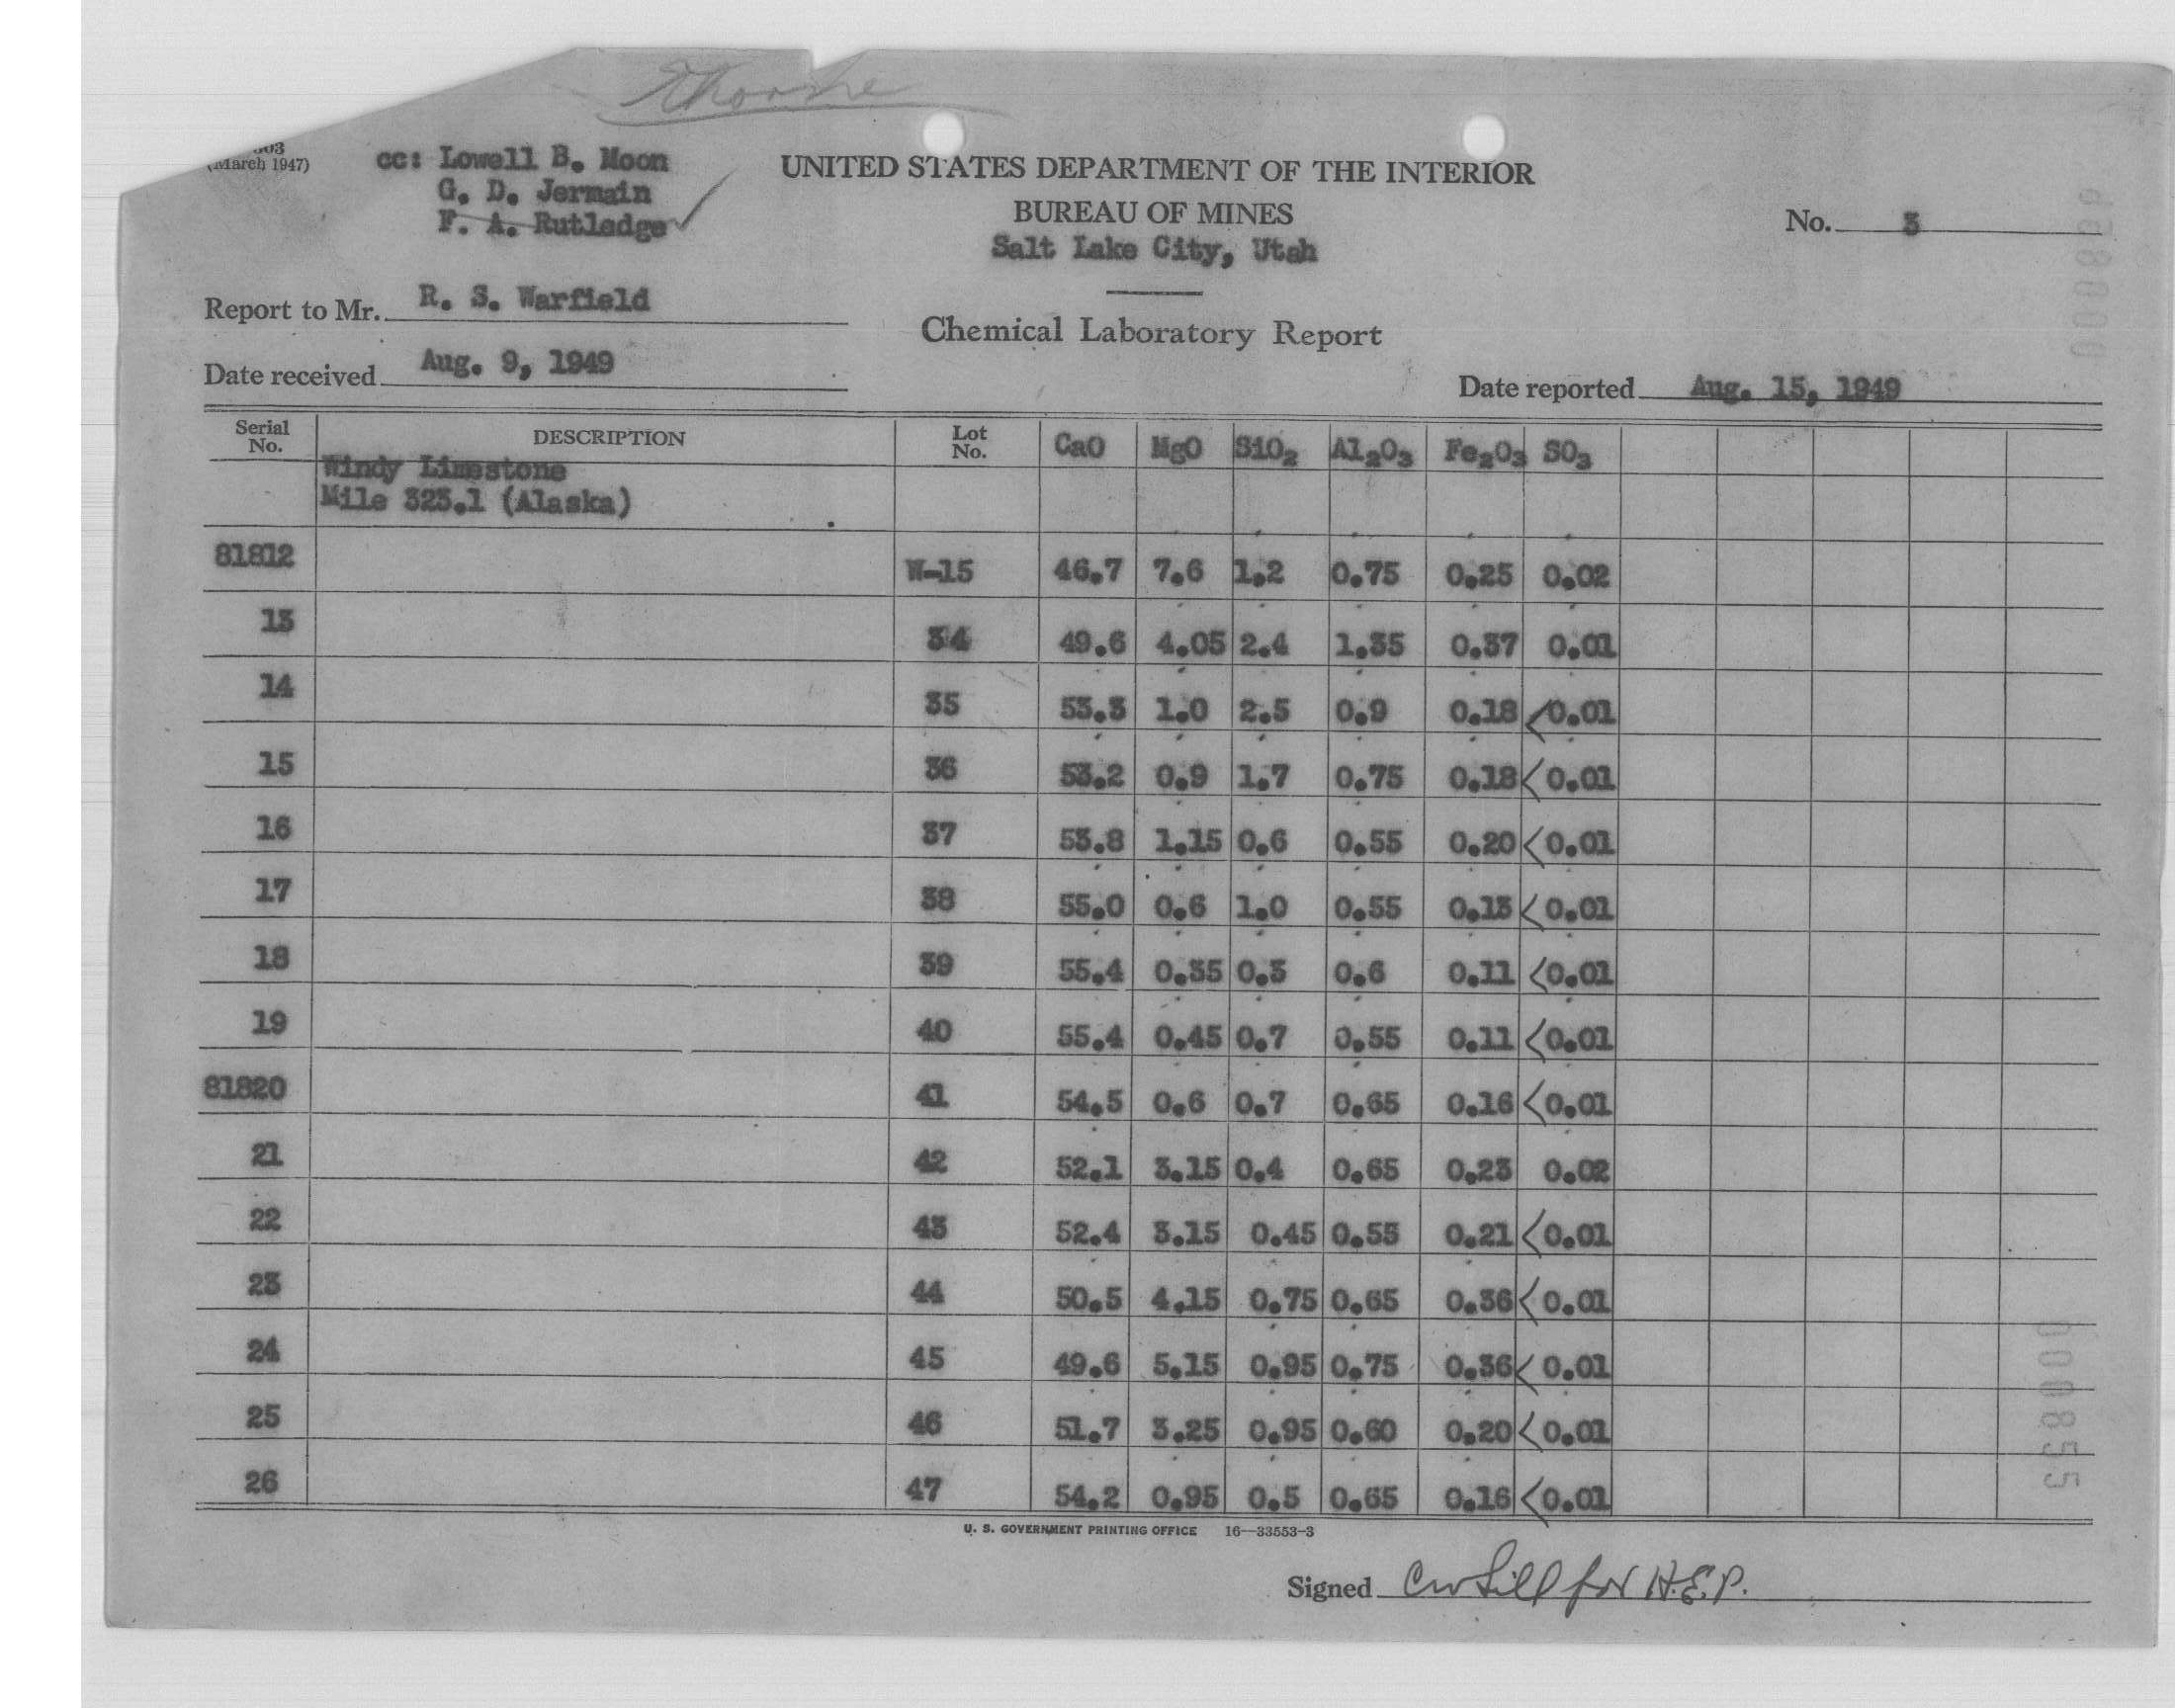 (March 1947)
cc: Lowell B. Moon
G. D. Jermain
F. A. Rutledge
UNITED STATES DEPARTMENT OF THE INTERIOR
BUREAU OF MINES
Salt Lake City, Utah
No. 3
Report to Mr. R. S. Warfield
Chemical Laboratory Report
Date received Aug. 9, 1949
Date reported Aug. 15, 1949
Serial No. DESCRIPTION Lot No. CaO MgO SiO2 Al2O3 Fe2O3 SO3
Windy Limestone
Mile 323.1 (Alaska)
81812 W-15 46.7 7.6 1.2 0.75 0.25 0.02
13 34 49.6 4.05 2.4 1.35 0.37 0.01
14 35 53.3 1.0 2.5 0.9 0.18 <0.01
15 36 53.2 0.9 1.7 0.75 0.18 <0.01
16 37 53.8 1.15 0.6 0.55 0.20 <0.01
17 38 55.0 0.6 1.0 0.55 0.13 <0.01
18 39 55.4 0.35 0.3 0.6 0.11 <0.01
19 40 55.4 0.45 0.7 0.55 0.11 <0.01
81820 41 54.5 0.6 0.7 0.65 0.16 <0.01
21 42 52.1 3.15 0.4 0.65 0.23 0.02
22 43 52.4 3.15 0.45 0.55 0.21 <0.01
23 44 50.5 4.15 0.75 0.65 0.36 <0.01
24 45 49.6 5.15 0.95 0.75 0.36 <0.01
25 46 51.7 3.25 0.95 0.60 0.20 <0.01
26 47 54.2 0.95 0.5 0.65 0.16 <0.01
U. S. GOVERNMENT PRINTING OFFICE 16—33553-3
Signed for H.E.P.
000855